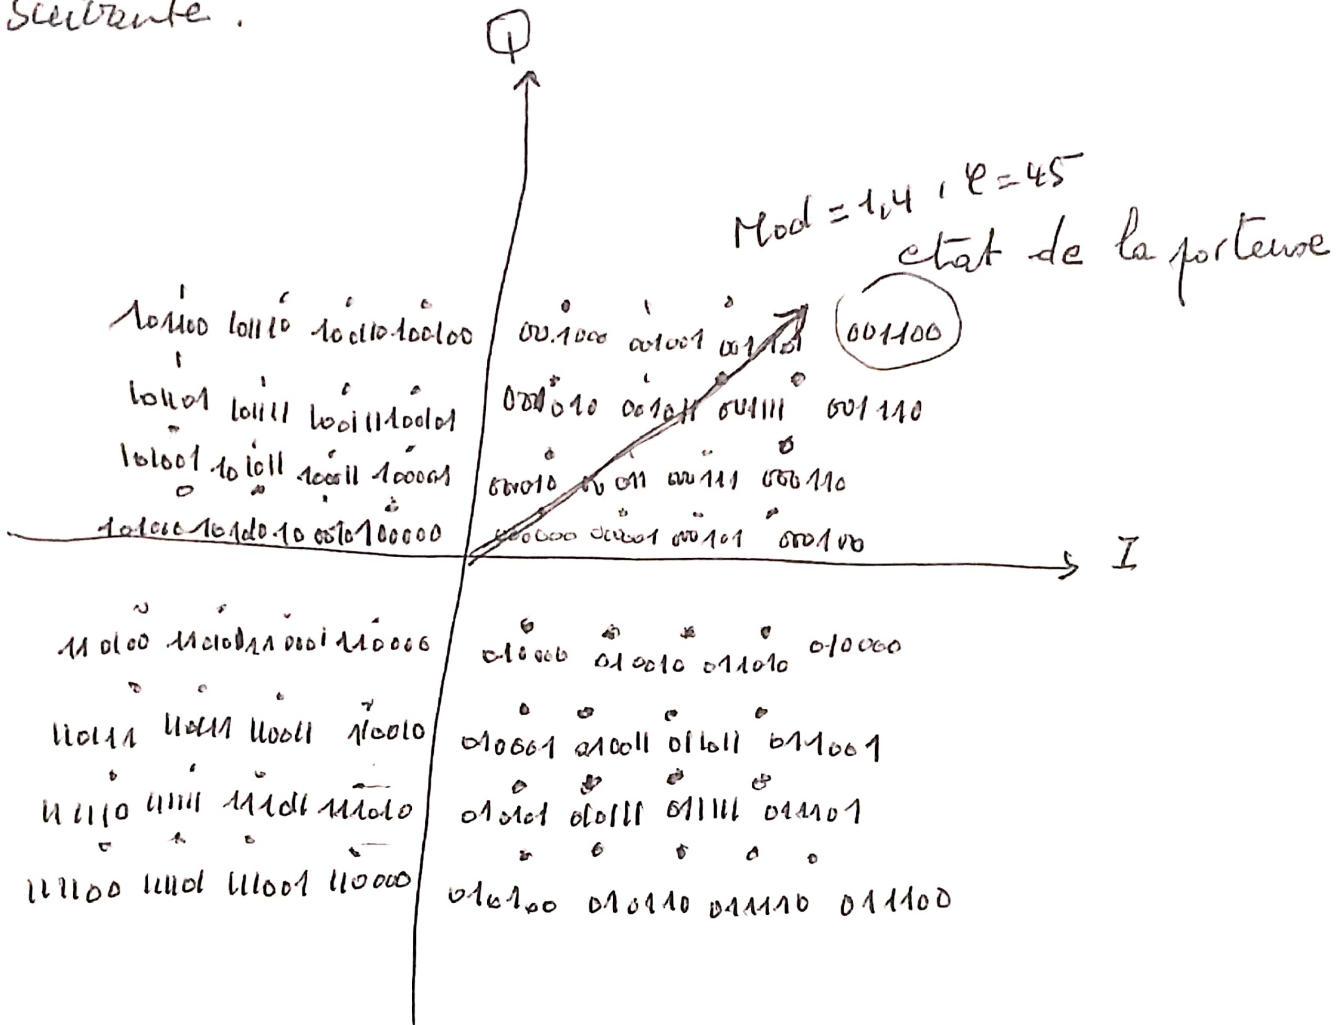 suivante.
Q
Mod = 1,4, φ = 45
etat de la porteuse
101100 101110 100110 100100 001000 001001 001101 001100
101101 101111 100111 100101 001010 001011 001111 001110
101001 101011 100011 100001 000010 000111 000110
100000 000000 000001 000101 000100
I
110000 010000 010010 011010 010000
110011 110010 010001 010011 011011 011001
111110 111111 111011 111010 010101 010111 011111 011101
111100 111101 111001 110000 010100 010110 011110 011100